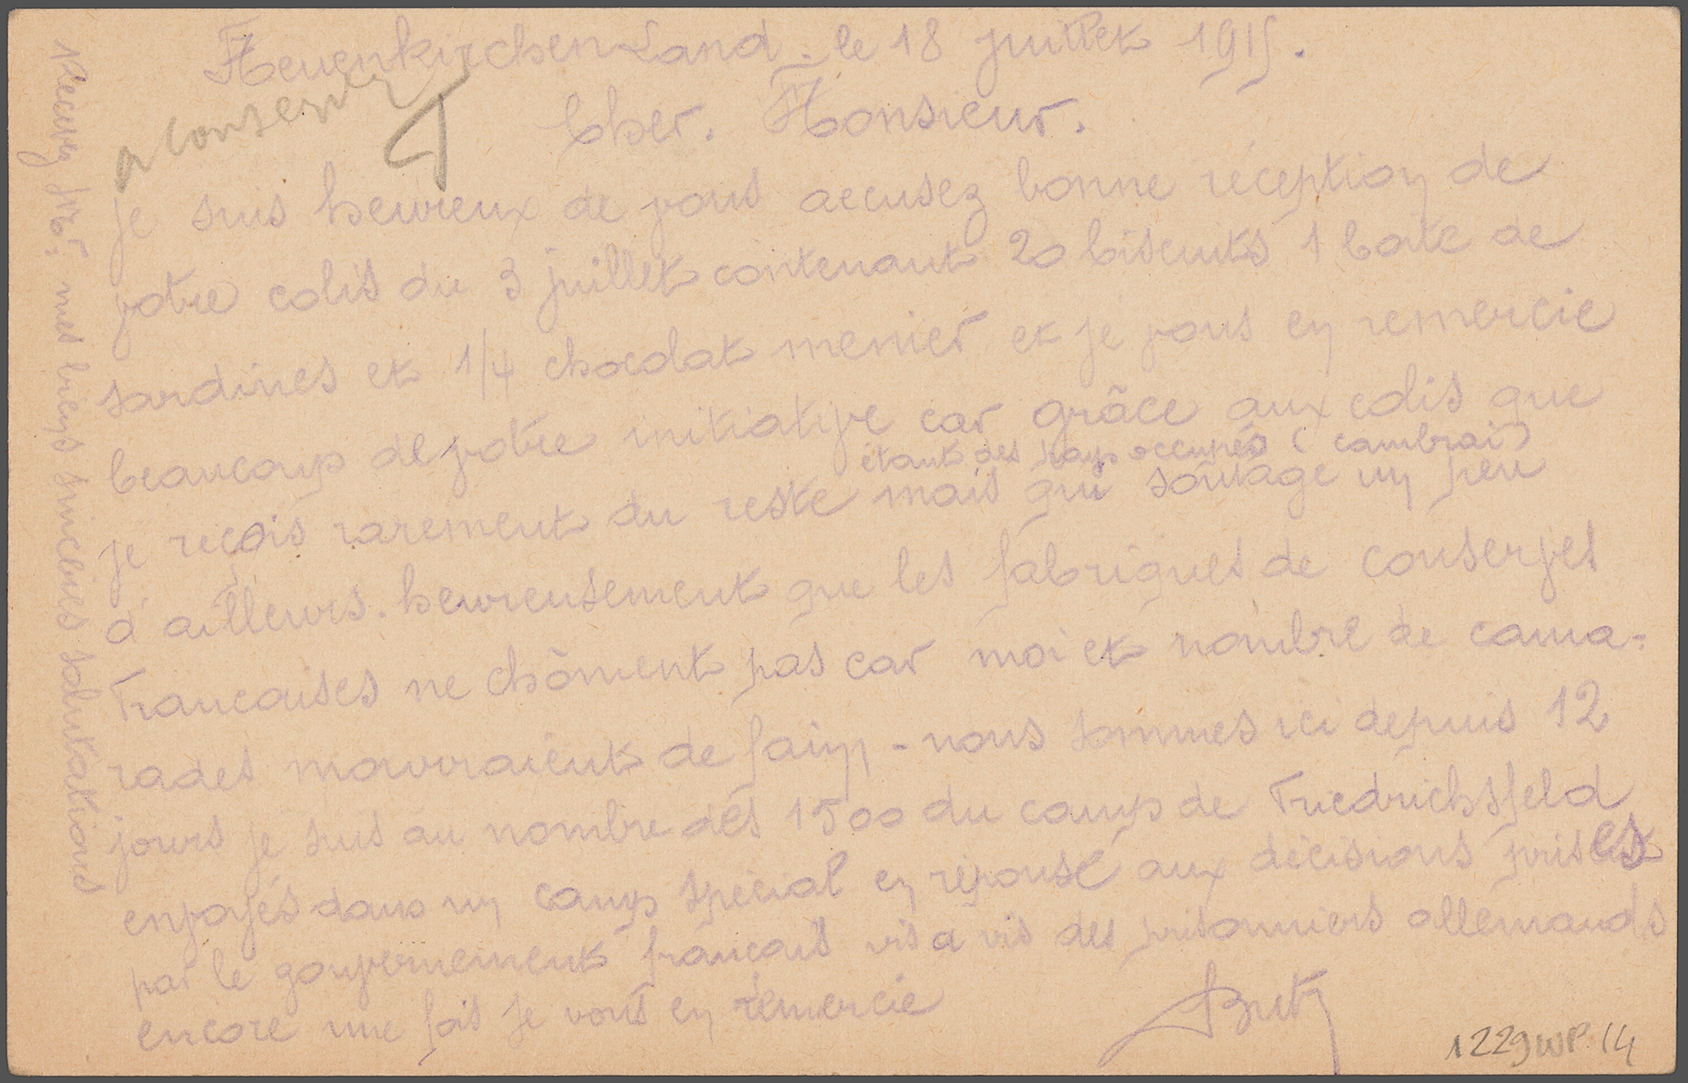 Neuenkirchen Land. le 18 juillet 1915.
a conserver
Cher. Monsieur.
je suis heureux de vous accusez bonne réception de
votre colis du 3 juillet contenant 20 biscuits 1 boite de
sardines et 1/4 chocolat menier et je vous en remercie
beaucoup de votre initiative car grâce aux colis que
étant des pays occupés (cambrai)
je reçois rarement du reste mais qui soulage un peu
d'ailleurs. heureusement que les fabriques de conserves
Françaises ne chôment pas car moi et nombre de cama=
rades mourraient de faim - nous sommes ici depuis 12
jours je suis au nombre des 1500 du camp de Friedrichsfeld
envoyés dans un camp spécial en réponse aux décisions prises
par le gouvernement français vis a vis des prisonniers allemands
encore une fois je vous en remercie
Recevez Mr. mes biens sincères salutations
1229WP.14